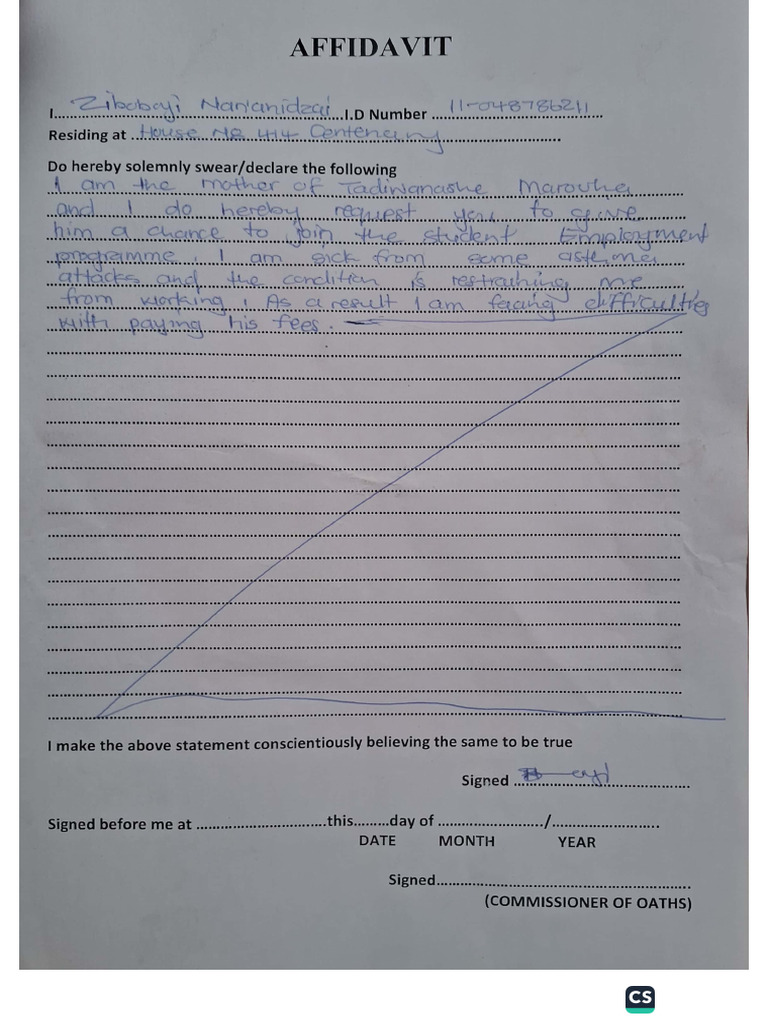 AFFIDAVIT
I.... Ziboboyi Nanianidzai ....I.D Number .... 11-048786211 ....
Residing at .... House No 414 Centenary ....
Do hereby solemnly swear/declare the following
I am the mother of Tadiwanashe Marovha
and I do hereby request you to give
him a chance to join the student Employment
programme. I am sick from some asthma
attacks and the condition is restraining me
from working. As a result I am facing difficulties
with paying his fees.
I make the above statement conscientiously believing the same to be true
Signed ....
Signed before me at ....this....day of ..../....
DATE MONTH YEAR
Signed....
(COMMISSIONER OF OATHS)
CS